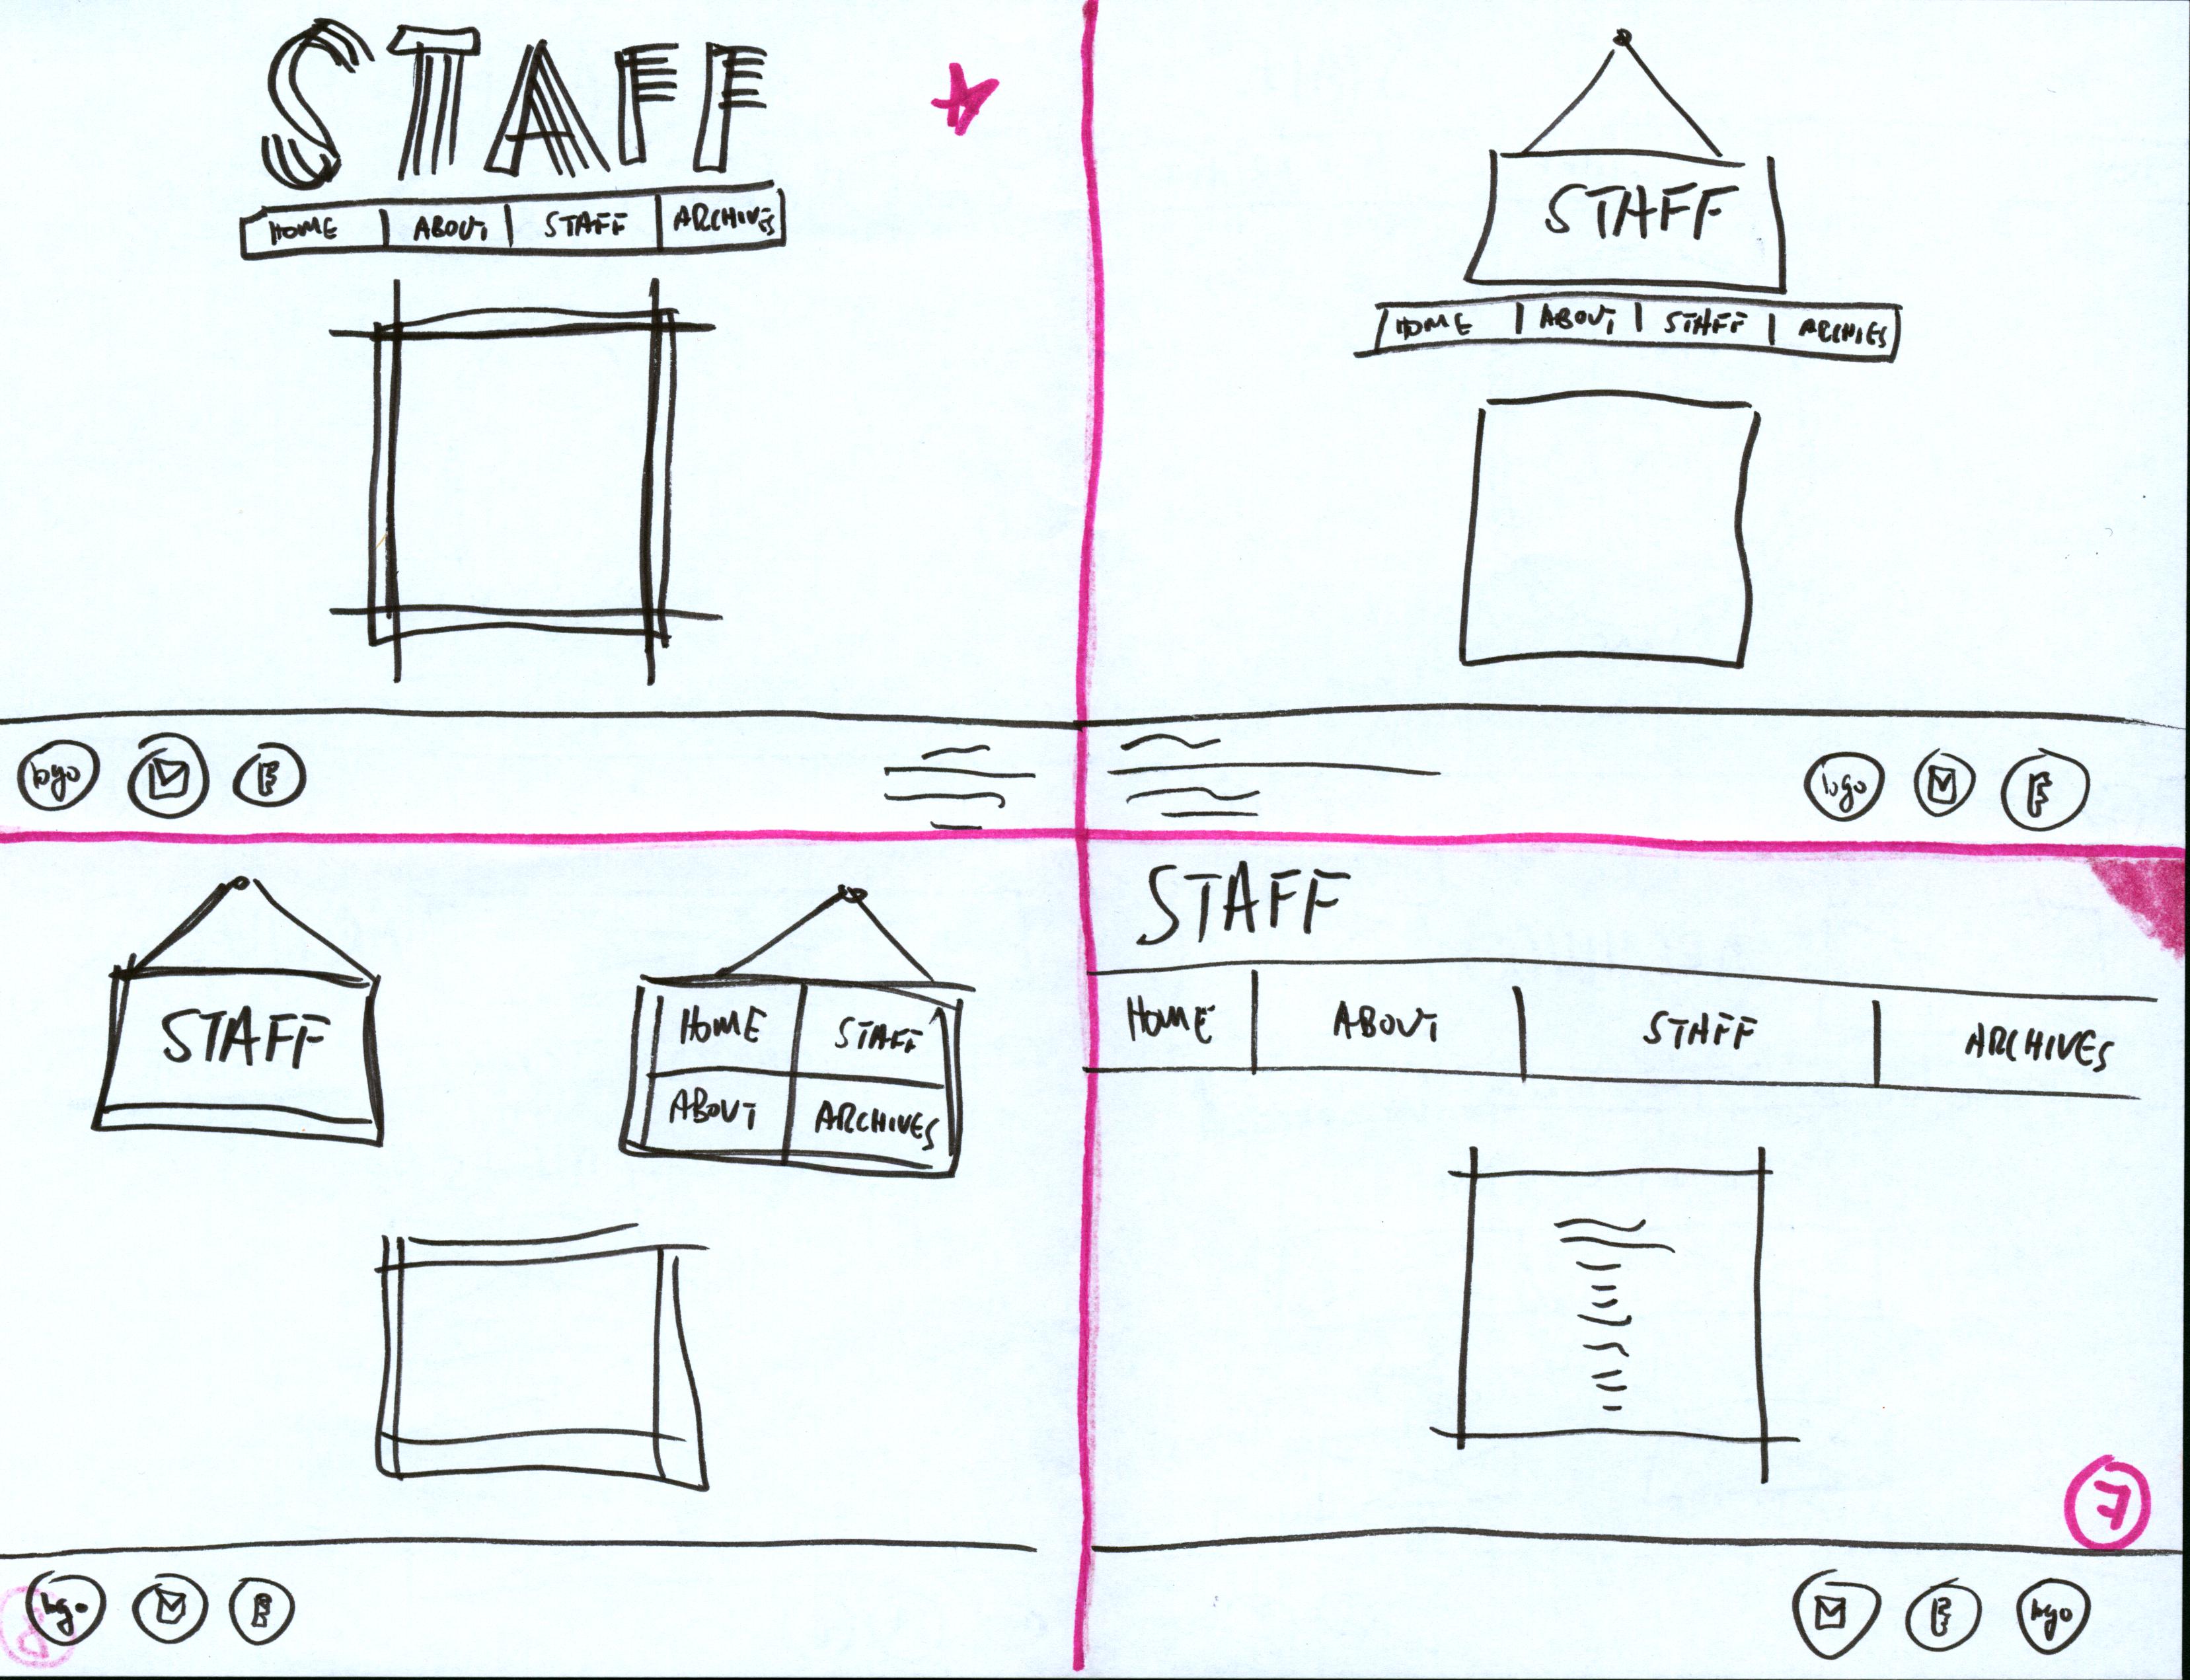 STAFF
HOME ABOUT STAFF ARCHIVES
logo F
STAFF
HOME ABOUT STAFF ARCHIES
logo F
STAFF
HOME STAFF
ABOUT ARCHIVES
logo F
STAFF
HOME ABOUT STAFF ARCHIVES
7
F logo